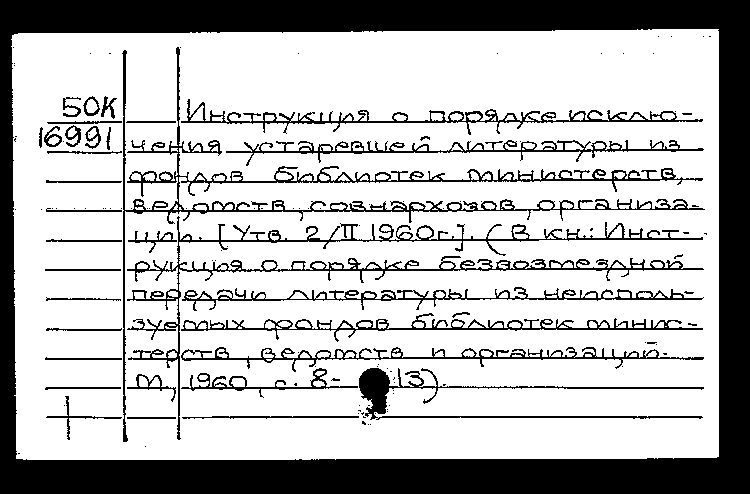 50К Инструкция о порядке исклю-
16991 чения устаревшей литературы из
фондов библиотек министерств,
ведомств, совнархозов, организа-
ции. [Утв. 2/II 1960г.]. (В кн.: Инст-
рукция о порядке безвозмездной
передачи литературы из неисполь-
зуемых фондов библиотек минис-
терств, ведомств и организаций.
М., 1960, с. 8-13).